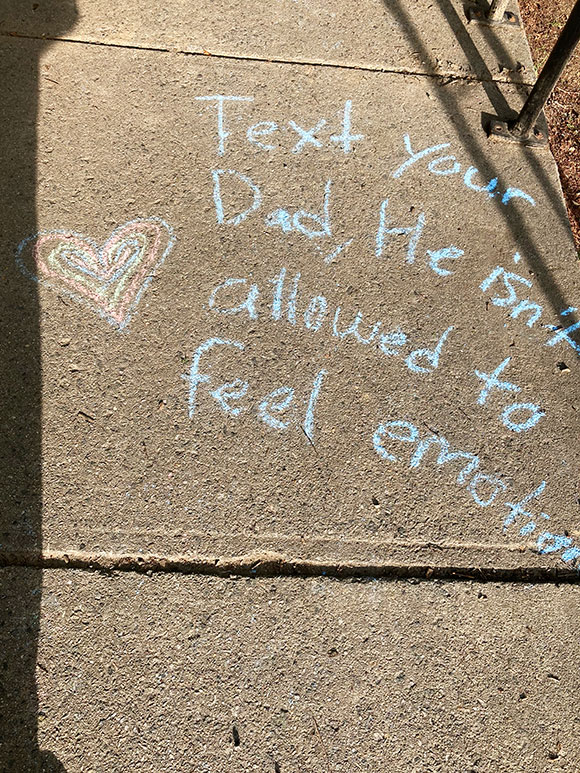 Text your
Dad, He isn't
allowed to
feel emotion